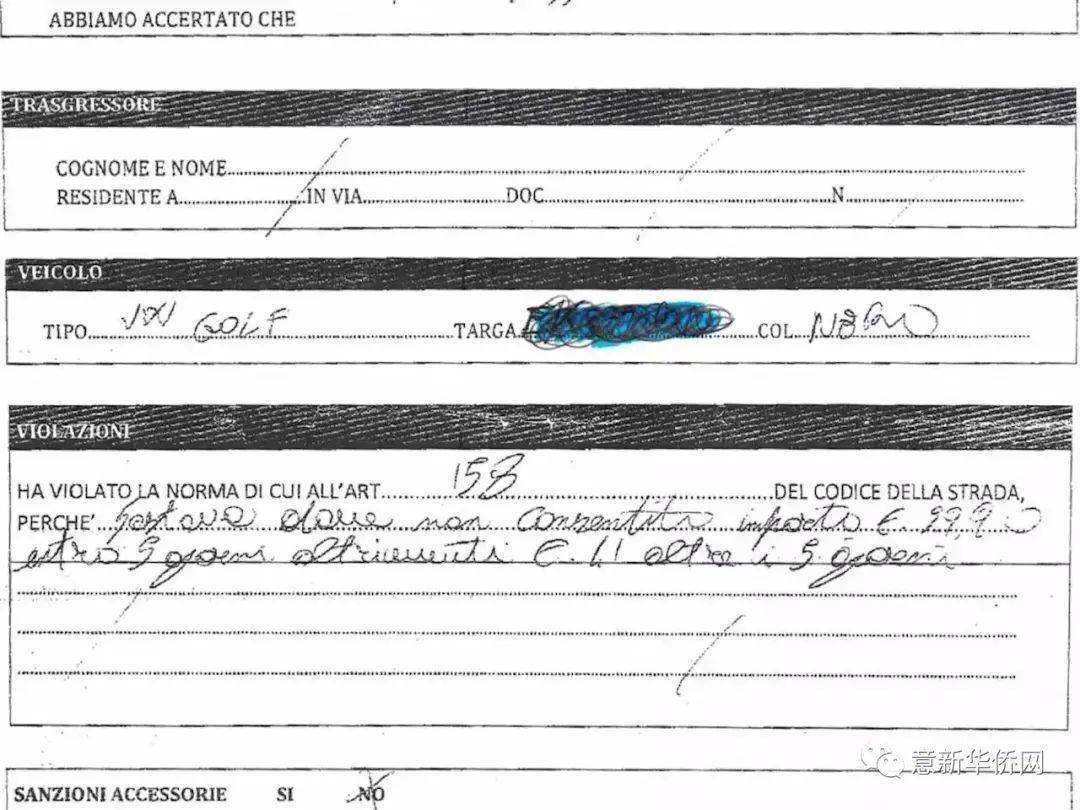 ABBIAMO ACCERTATO CHE
TRASGRESSORE
COGNOME E NOME
RESIDENTE A IN VIA DOC N
VEICOLO
TIPO VW GOLF TARGA COL NERO
VIOLAZIONI
HA VIOLATO LA NORMA DI CUI ALL'ART. 158 DEL CODICE DELLA STRADA,
PERCHE' sostava dove non consentito importo €.
entro 5 giorni altrimenti €. 41 oltre i 5 giorni
意新华侨网
SANZIONI ACCESSORIE SI NO